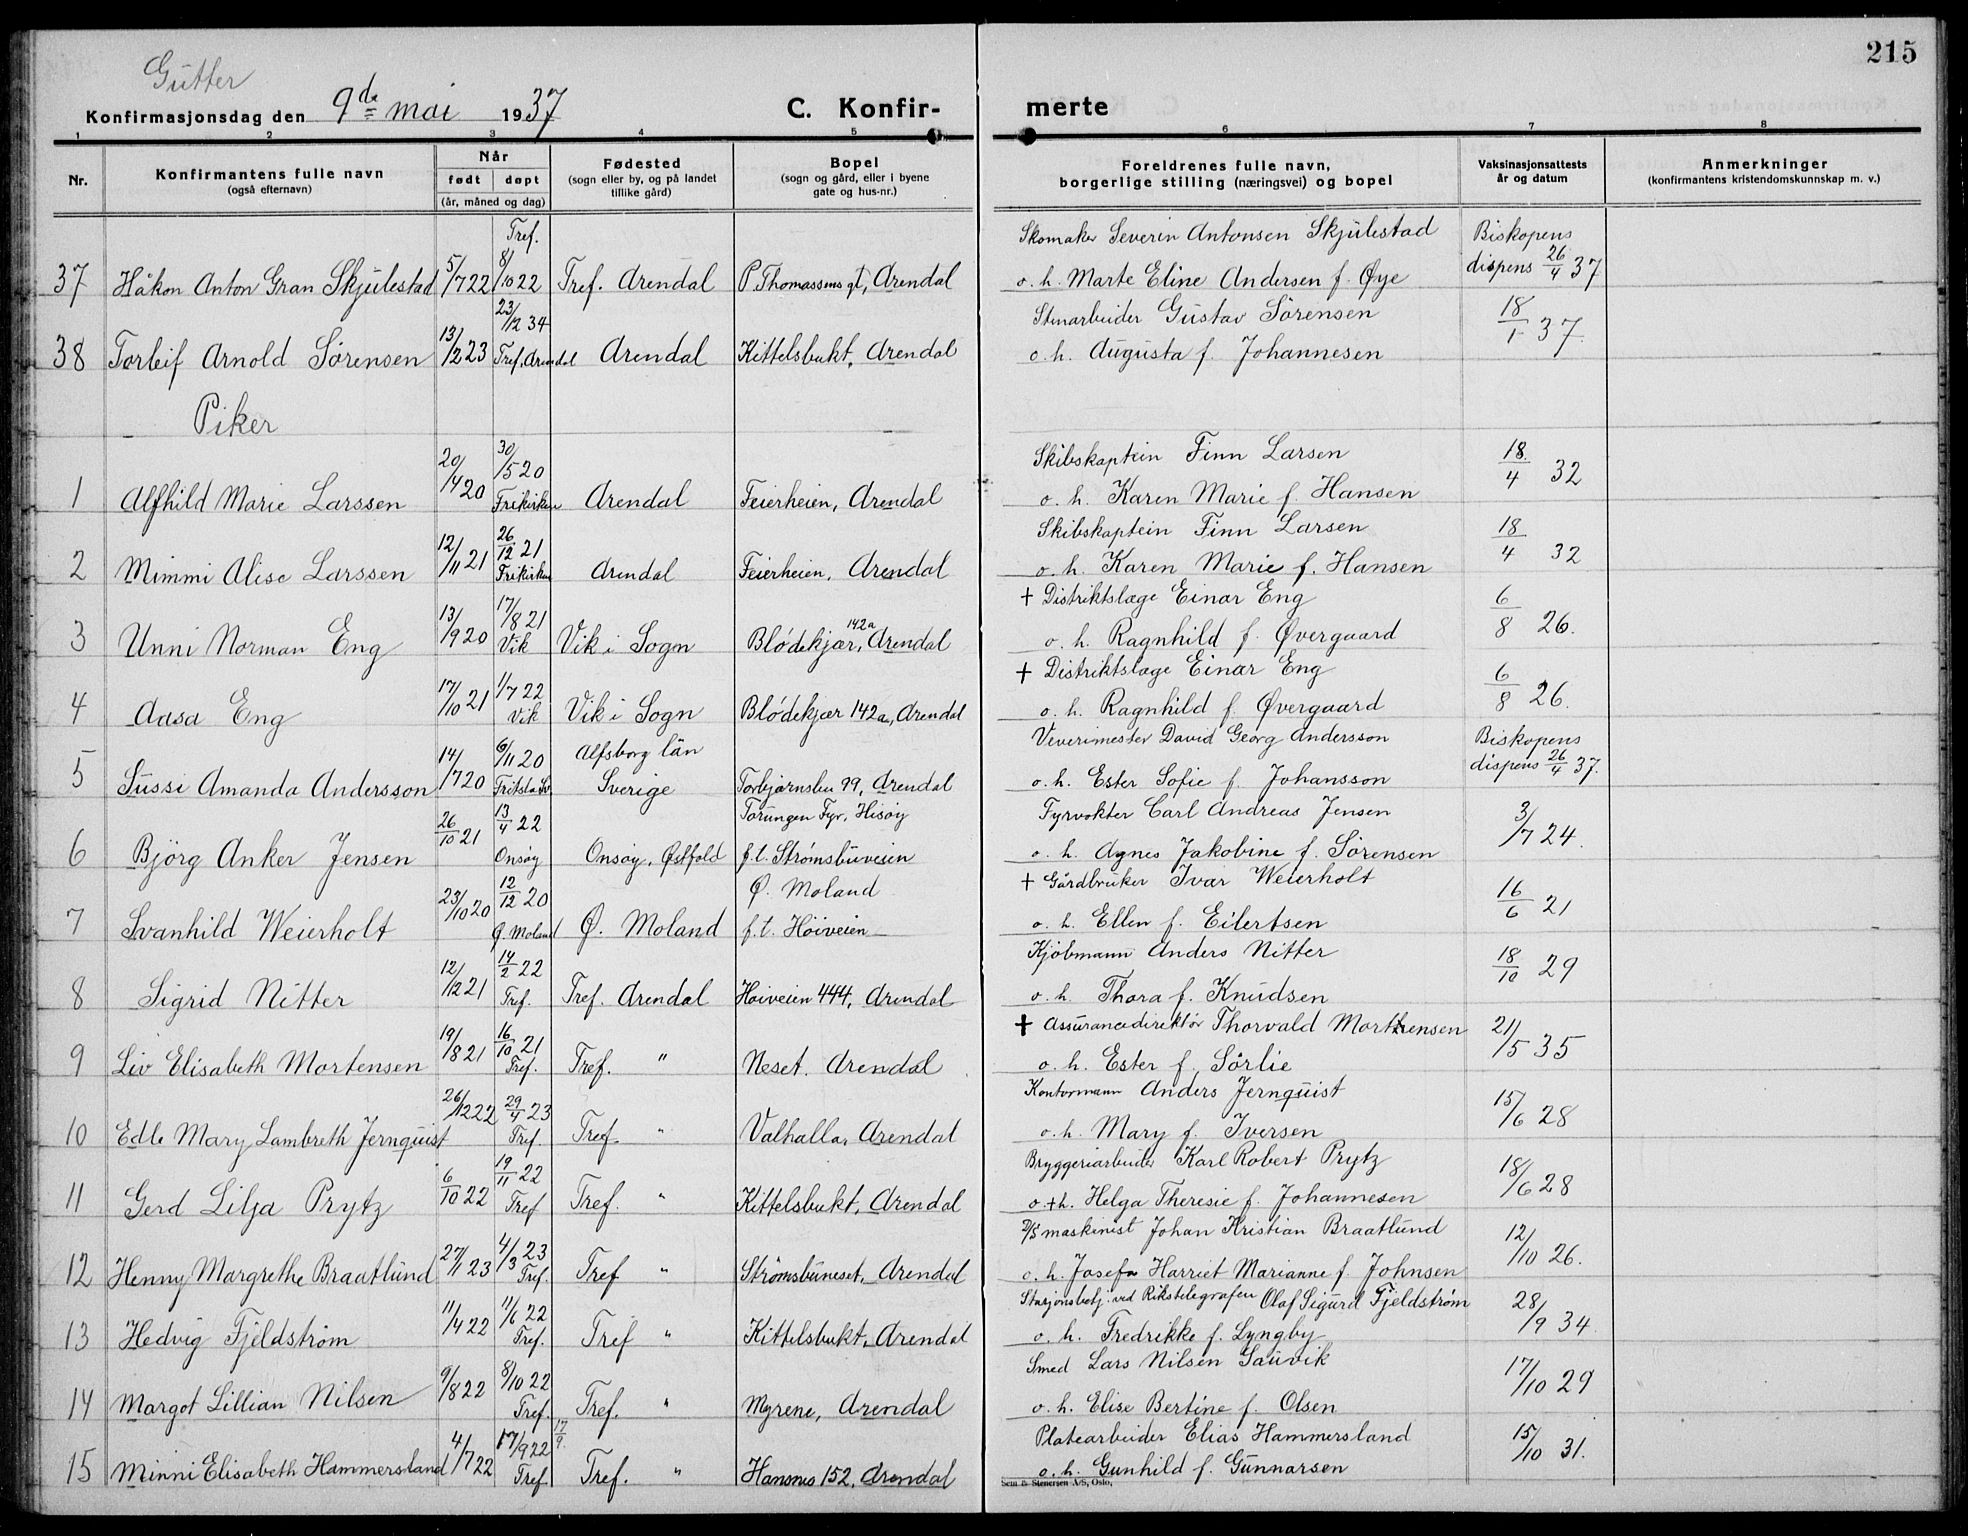 215
Gutter
Konfirmasjonsdag den 9de mai 1937
C. Konfir-
merte
1 2 3 4 5 6 7 8
Nr.
Konfirmantens fulle navn
(også efternavn)
Når
født døpt
(år, måned og dag)
Fødested
(sogn eller by, og på landet
tillike gård)
Bopel
(sogn og gård, eller i byene
gate og hus-nr.)
Foreldrenes fulle navn,
borgerlige stilling (næringsvei) og bopel
Vaksinasjonsattests
år og datum
Anmerkninger
(konfirmantens kristendomskunnskap m. v.)
Tref. Skomaker Severin Antonsen Skjulestad Biskopens
37 Håkon Anton Gran Skjulestad 5/7 22 8/10 22 Tref. Arendal P. Thomassens gt, Arendal o. h. Marte Eline Andersen f. Øye dispens 26/4 37
23/12 34 Stenarbeider Gustav Sörensen 18/1 37
38 Torleif Arnold Sörensen 13/12 23 Tref. Arendal Arendal Kittelsbukt, Arendal o. h. Augusta f. Johannesen
Piker
20/4 20 30/5 20 Skibskaptein Finn Larsen 18/4 32
1 Alfhild Marie Larssen Frikirken Arendal Feierheien, Arendal o. h. Karen Marie f. Hansen
12/11 21 26/12 21 Skibskaptein Finn Larsen 18/4 32
2 Mimmi Alise Larssen Frikirken Arendal Feierheien, Arendal o. h. Karen Marie f. Hansen
13/9 20 17/8 21 142a † Distriktslæge Einar Eng 6/8 26.
3 Unni Norman Eng Vik Vik i Sogn Blødekjær, Arendal o. h. Ragnhild f. Øvergaard
17/10 21 1/7 22 † Distriktslæge Einar Eng 6/8 26.
4 Aasa Eng Vik Vik i Sogn Blødekjær 142a, Arendal o. h. Ragnhild f. Øvergaard
14/7 20 6/11 20 Alfsborg län Veverimester David Georg Andersson Biskopens
5 Sussi Amanda Andersson Fritsla Sv. Sverige Torbjørnsbu 99, Arendal o. h. Ester Sofie f. Johansson dispens 26/4 37.
26/10 21 13/4 22 Torungen Fyr, Hisøy Fyrvokter Carl Andreas Jensen 3/7 24.
6 Björg Anker Jensen Onsøy Onsøy, Østfold f.t. Strømsbuveien o. h. Agnes Jakobine f. Sörensen
23/10 20 12/12 20 Ø. Moland † Gårdbruker Ivar Weierholt 16/6 21
7 Svanhild Weierholt Ø. Moland Ø. Moland f.t. Höiveien o. h. Ellen f. Eilertsen
12/12 21 14/2 22 Kjöbmann Anders Nitter 18/10 29
8 Sigrid Nitter Tref. Tref. Arendal Höiveien 444, Arendal o. h. Thora f. Knudsen
19/8 21 16/10 21 † Assurancedirektör Thorvald Morthensen 21/5 35
9 Liv Elisabeth Mortensen Tref. Tref. " Neset. Arendal o. h. Ester f. Sörlie
26/12 22 29/4 23 Kontormann Anders Jernquist 15/6 28
10 Edle Mary Lambreth Jernquist Tref. Tref. " Valhalla, Arendal o. h. Mary f. Iversen
6/10 22 19/11 22 Bryggeriarbeider Karl Robert Prytz 18/6 28
11 Gerd Lilja Prytz Tref Tref. " Kittelsbukt, Arendal o. † h. Helga Theresie f. Johannesen
27/1 23 4/3 23 D/S maskinist Johan Kristian Braatlund 12/10 26.
12 Henny Margrethe Braatlund Tref. Tref " Strømsbuneset, Arendal o. h. Josefa Harriet Marianne f. Johnsen
11/4 22 11/6 22 Stasjonsbetj. ved Rikstelegrafen Olaf Sigurd Fjeldstrøm 28/9 34.
13 Hedvig Fjeldstrøm Tref. Tref " Kittelsbukt, Arendal o. h. Fredrikke f. Lyngby
9/8 22 8/10 22 Smed Lars Nilsen Sauvik 17/10 29
14 Margot Lillian Nilsen Tref. Tref. " Myrene, Arendal o. h. Elise Bertine f. Olsen
4/7 22 17/9 22 17/9. Platearbeider Elias Hammersland 15/10 31.
15 Minni Elisabeth Hammersland Tref Tref. " Hansnes 152, Arendal o. h. Gunhild f. Gunnarsen
Sem & Stenersen A/S, Oslo.